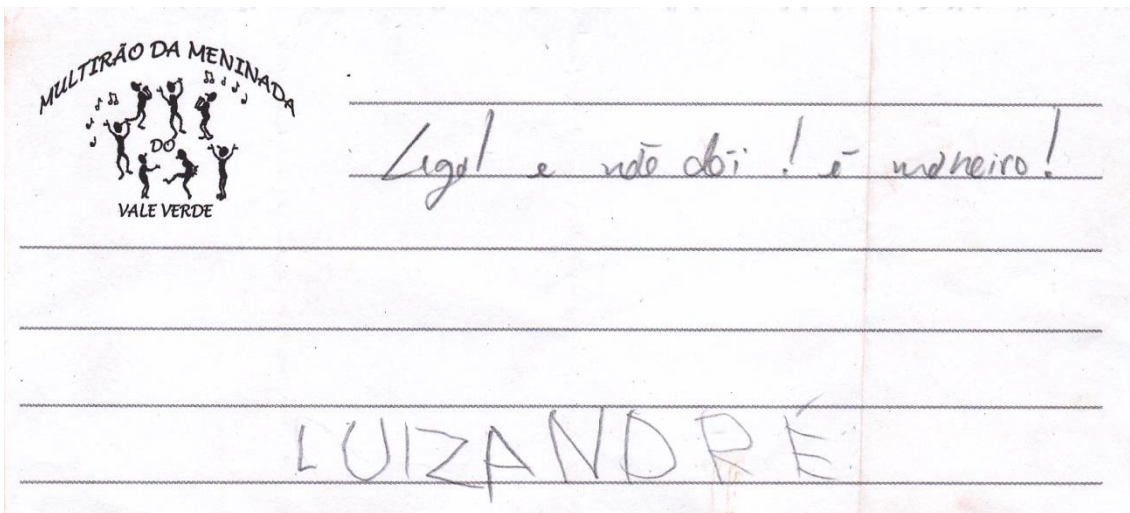 MULTIRÃO DA MENINADA
DO
VALE VERDE
Legal e não dói! é maneiro!
LUIZ ANDRÉ